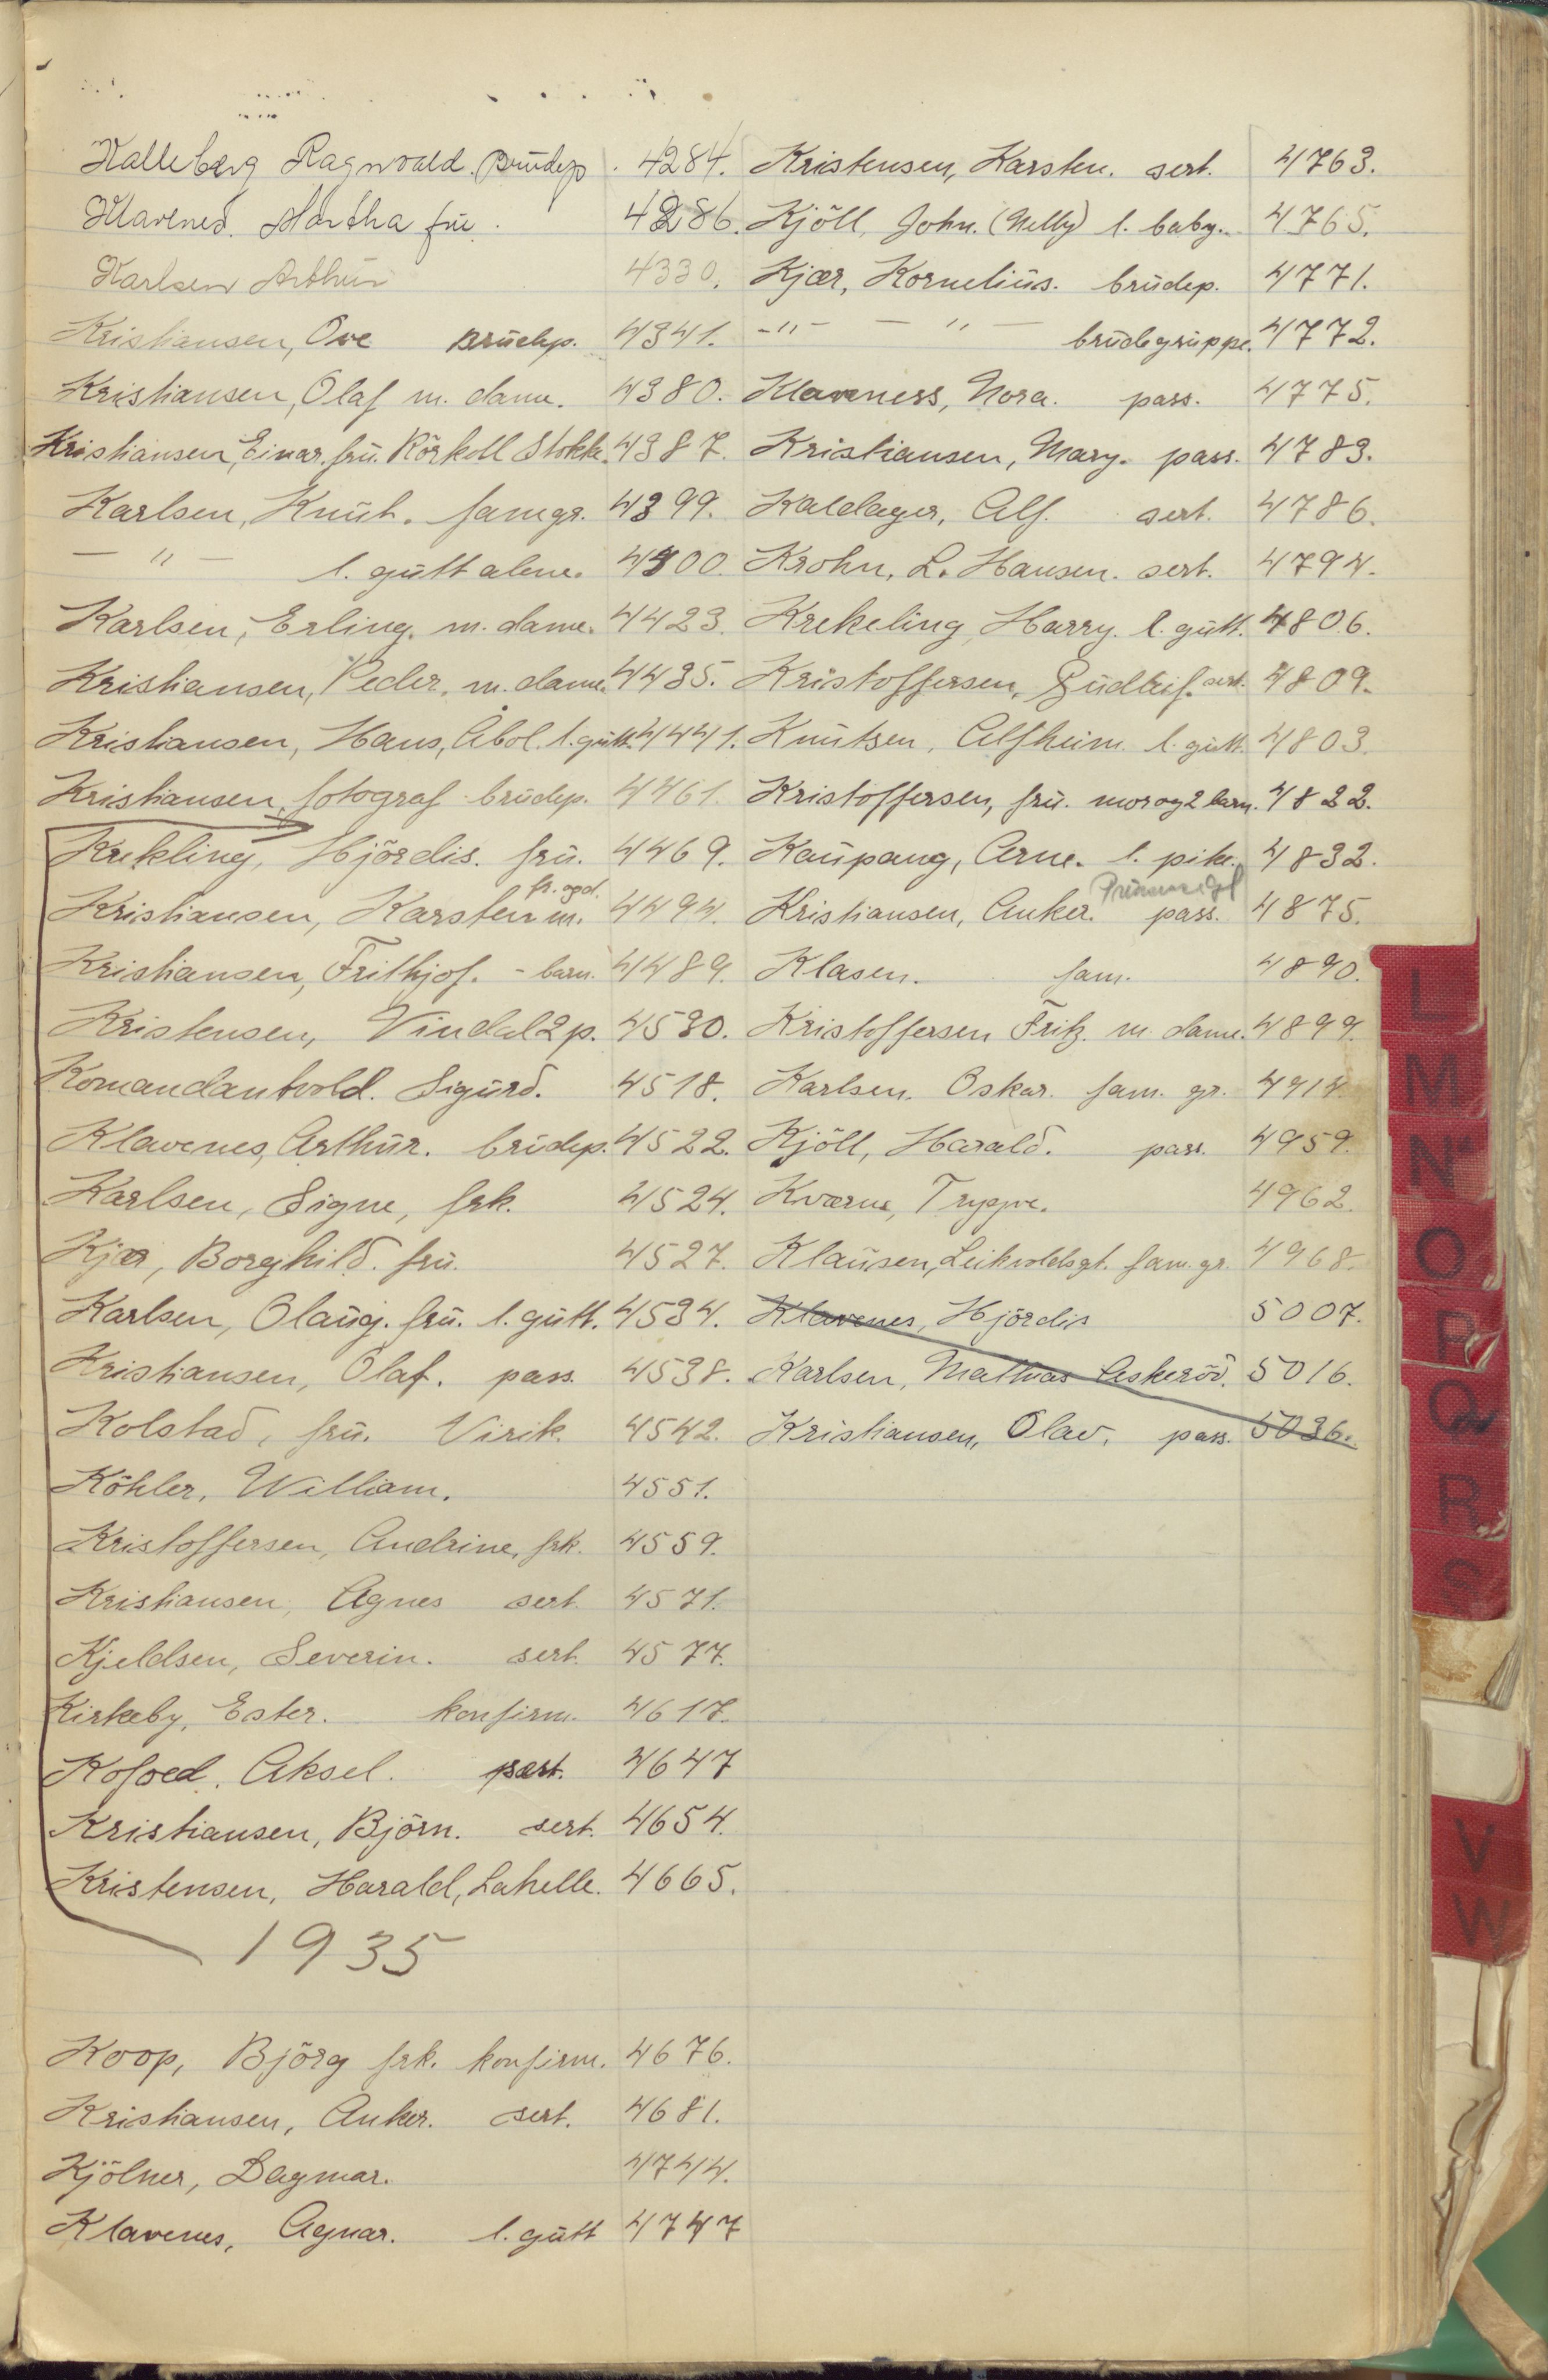 Kalleberg Ragnvald. brudep. 4284.
Klavenes. Martha frü. 4286.
Karlsen Arthür 4330.
Kristiansen, Ove brüdep. 4341.
Kristiansen, Olaf m. dame. 4380.
Kristiansen, Einar. frü. Rörkoll Stokke. 4387.
Karlsen, Knüt. famgr. 4399.
— " — l. gütt alene. 4400.
Karlsen, Erling. m. dame. 4423.
Kristiansen, Peder. m. dame. 4435.
Kristiansen, Hans, Åbol. l. gütt. 4441.
Kristiansen, fotograf brüdep. 4461.
Krekling, Hjördis. frü. 4469.
Kristiansen, Karsten m. 4494.
Kristiansen, Frithjof. - barn. 4489.
Kristensen, Vindal 2 p. 4530.
Komandantvold. Sigürd. 4518.
Klavenes, Arthür. brüdep. 4522.
Karlsen, Signe, frk. 4524.
Kjær, Borghild. frü. 4527.
Karlsen, Olaüg. frü. l. gütt. 4534.
Kristiansen, Olaf. pass. 4538.
Kolstad, frü. Virik. 4542.
Köhler, William. 4551.
Kristoffersen, Andrine, frk. 4559.
Kristiansen, Agnes sert. 4571.
Kjeldsen, Severin. sert. 4577.
Kirkeby, Ester. konfirm. 4617.
Kofoed. Aksel. 4647
Kristiansen, Björn. sert. 4654.
Kristensen, Harald, Lahelle. 4665.
1935
Koop, Björg frk. konfirm. 4676.
Kristiansen, Anker. sert. 4681.
Kjölner, Dagmar. 4744.
Klavenes, Agnar. l. gütt 4747
Kristensen, Karsten. sert. 4763.
Kjöll, John. (Nelly) l. baby. 4765.
Kjær, Kornelius. brüdep. 4771.
-"- — " — brüdegrüppe. 4772.
Klaveness, Nora. pass. 4775.
Kristiansen, Mary. pass. 4783.
Kaldager, Alf. sert. 4786.
Krohn, L. Hansen. sert. 4794.
Krekeling, Harry. l. gütt. 4806.
Kristoffersen, Güdleif. sert. 4809.
Knütsen, Alfheim. l. gütt. 4803.
Kristoffersen, frü. mor og 2 barn. 4822.
Kaüpang, Arne. l. pike. 4832.
Kristiansen, Anker. pass. 4875.
Klasen. fam. 4890.
Kristoffersen Fritz. m dame. 4899.
Karlsen. Oskar. fam. gr. 4914.
Kjöll, Harald. pass. 4959.
Kværne, Trygve. 4962.
Klaüsen, Leikvoldsgt. fam. gr. 4968.
Klavenes, Hjördis 5007.
Karlsen, Mathias Askeröd. 5016.
Kristiansen, Olav. pass. 5036.
L
M
N
O
P
Q
R
S
V
W